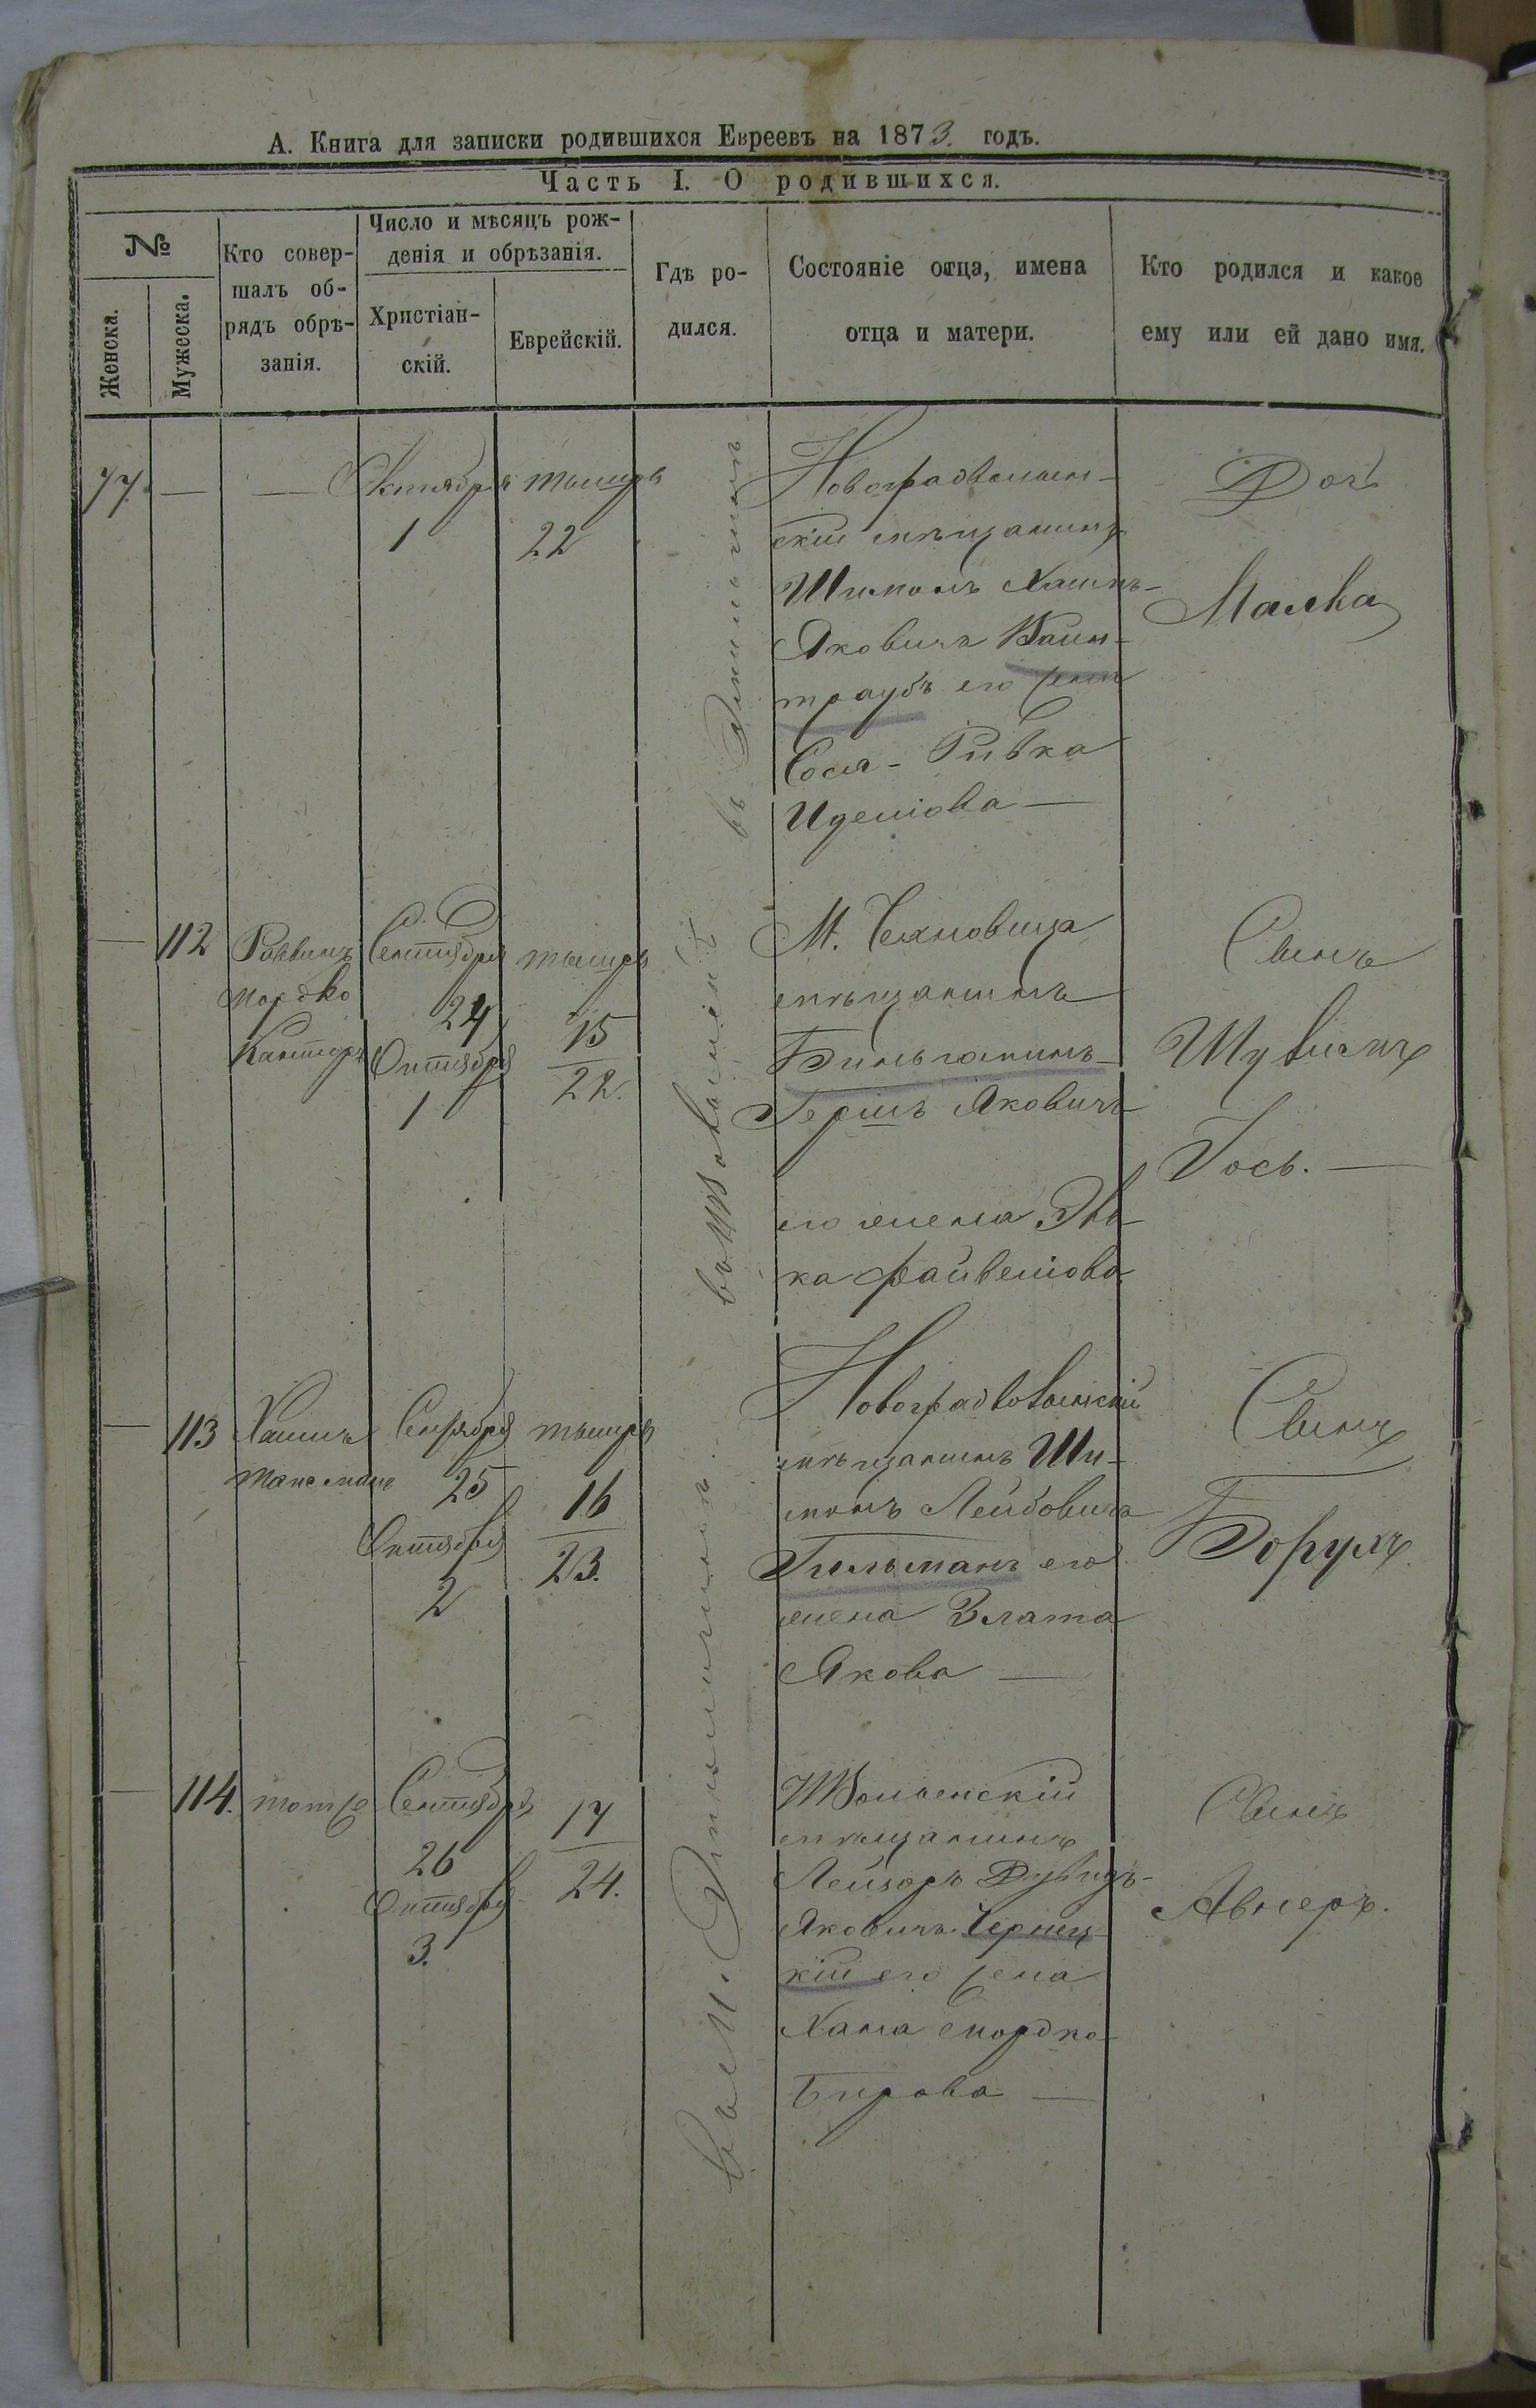 А. Книга для записки родившихся Евреевъ на 1873. годъ.
Часть I. О родившихся.
№
Женска.
Мужеска.
Кто совер-
шалъ об-
рядъ обрѣ-
занія.
Число и мѣсяцъ рож-
денія и обрѣзанія.
Христіан-
скій.
Еврейскій.
Гдѣ ро-
дился.
Состояніе отца, имена
отца и матери.
Кто родился и какое
ему или ей дано имя.
77. — —
Октября
1
тышри
22
Новоградволын-
скій мѣщанинъ
Шимонъ Хаимъ-
Яковичъ Вайн-
траубъ его жена
Сося-Ривка
Иделіова —
Дочь
Малка
— 112
Раввинъ
Мордко
Канторъ
Сентября
24
Октября
1
тышри
15
22.
М.
мѣщанинъ
Гершъ Яковичъ
его жена
ка Файвелiова
Сынъ
Іось. —
— 113
Хаимъ
Сентября
25
Октября
2
тышри
16
23.
Новоградволынскій
мѣщанинъ Ши-
монъ Лейбовичъ
Гильманъ его
жена Злата
Якова —
Сынъ
Борухъ.
— 114.
тотже
Сентября
26
Октября
3.
17
24.
мѣщанинъ
Лейзоръ Дувидъ-
Яковичъ Чернец-
кій его жена
Хана Мордко-
Берова —
Сынъ
Авнеръ.